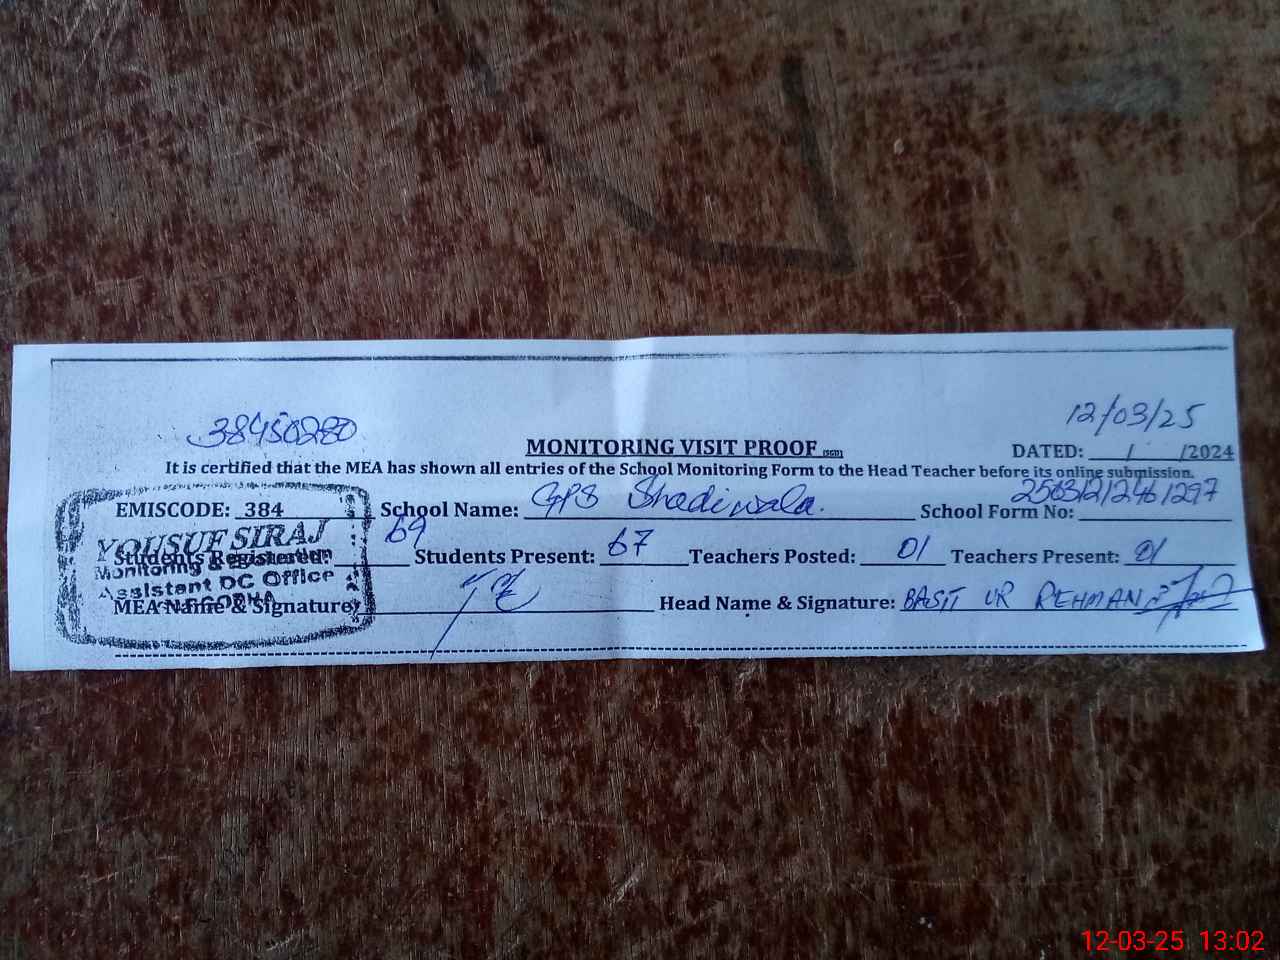 38450280
12/03/25
MONITORING VISIT PROOF (SGD)
DATED: ___/___/2024
It is certified that the MEA has shown all entries of the School Monitoring Form to the Head Teacher before its online submission.
EMISCODE: 384 School Name: GPS Shadiwala. School Form No:
YOUSUF SIRAJ
Students Registered: 69 Students Present: 67 Teachers Posted: 01 Teachers Present: 01
Monitoring & Evaluation
Assistant DC Office
SARGODHA
MEA Name & Signature: Head Name & Signature: BASIT UR REHMAN
12-03-25 13:02